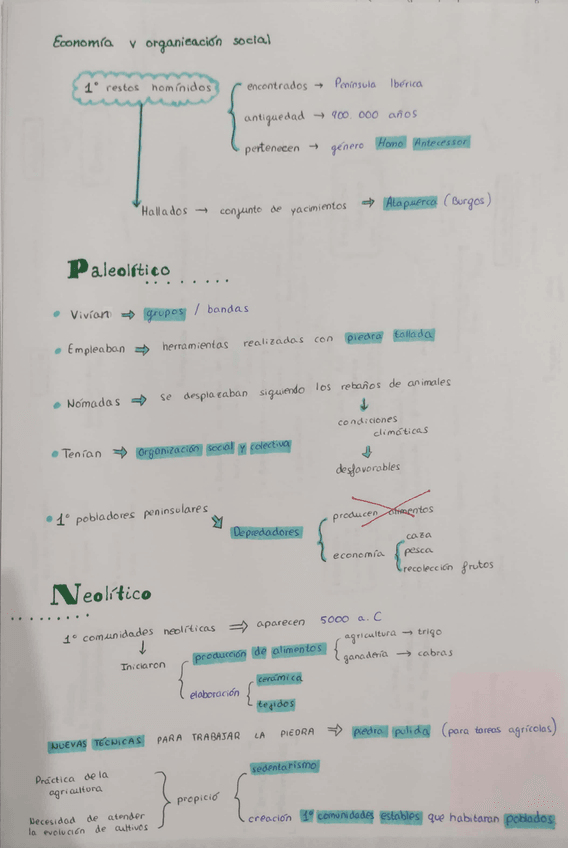 Economía y organización social
1º restos homínidos
encontrados → Península Ibérica
antiguedad → 900.000 años
pertenecen → género Homo Antecessor
Hallados → conjunto de yacimientos ⇒ Atapuerca (Burgos)
Paleolítico
• Vivían ⇒ grupos / bandas
• Empleaban ⇒ herramientas realizadas con piedra tallada
• Nómadas ⇒ se desplazaban siguiendo los rebaños de animales
condiciones
climáticas
desfavorables
• Tenían ⇒ organización social y colectiva
• 1º pobladores peninsulares
Depredadores
producen alimentos
economía
caza
pesca
recolección frutos
Neolítico
1º comunidades neolíticas ⇒ aparecen 5000 a.C
Iniciaron
producción de alimentos
agricultura → trigo
ganadería → cabras
elaboración
cerámica
tejidos
NUEVAS TÉCNICAS PARA TRABAJAR LA PIEDRA ⇒ piedra pulida (para tareas agrícolas)
Práctica de la
agricultura
Necesidad de atender
la evolución de cultivos
propició
sedentarismo
creación 1º comunidades estables que habitaran poblados